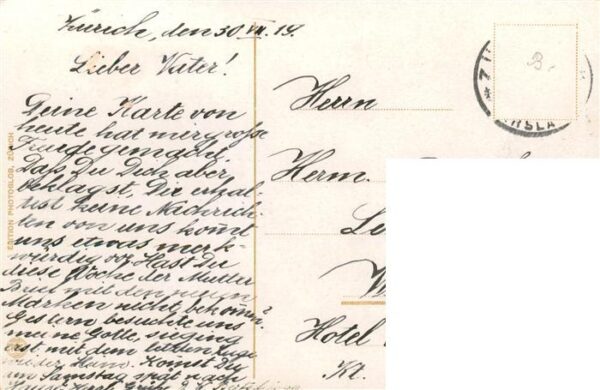 Zürich, den 30 VII. 14.
Lieber Vater!
Deine Karte von
heute hat mir große
Freude gemacht.
Daß Du Dich aber
beklagst, Du erhal-
test keine Nachrich-
ten von uns kommt
uns etwas merk-
würdig vor. Hast Du
diese Woche der Mutter
Brief mit den neuen
Marken nicht bekommen?
Gestern besuchte uns
meine Gotte, sie ging
erst mit dem letzten Zuge
wieder Heim. Kommst Du
am Samstag spät nach
EDITION PHOTOGLOB, ZÜRICH
Herrn
Herm.
Hotel
Kt.
B.-